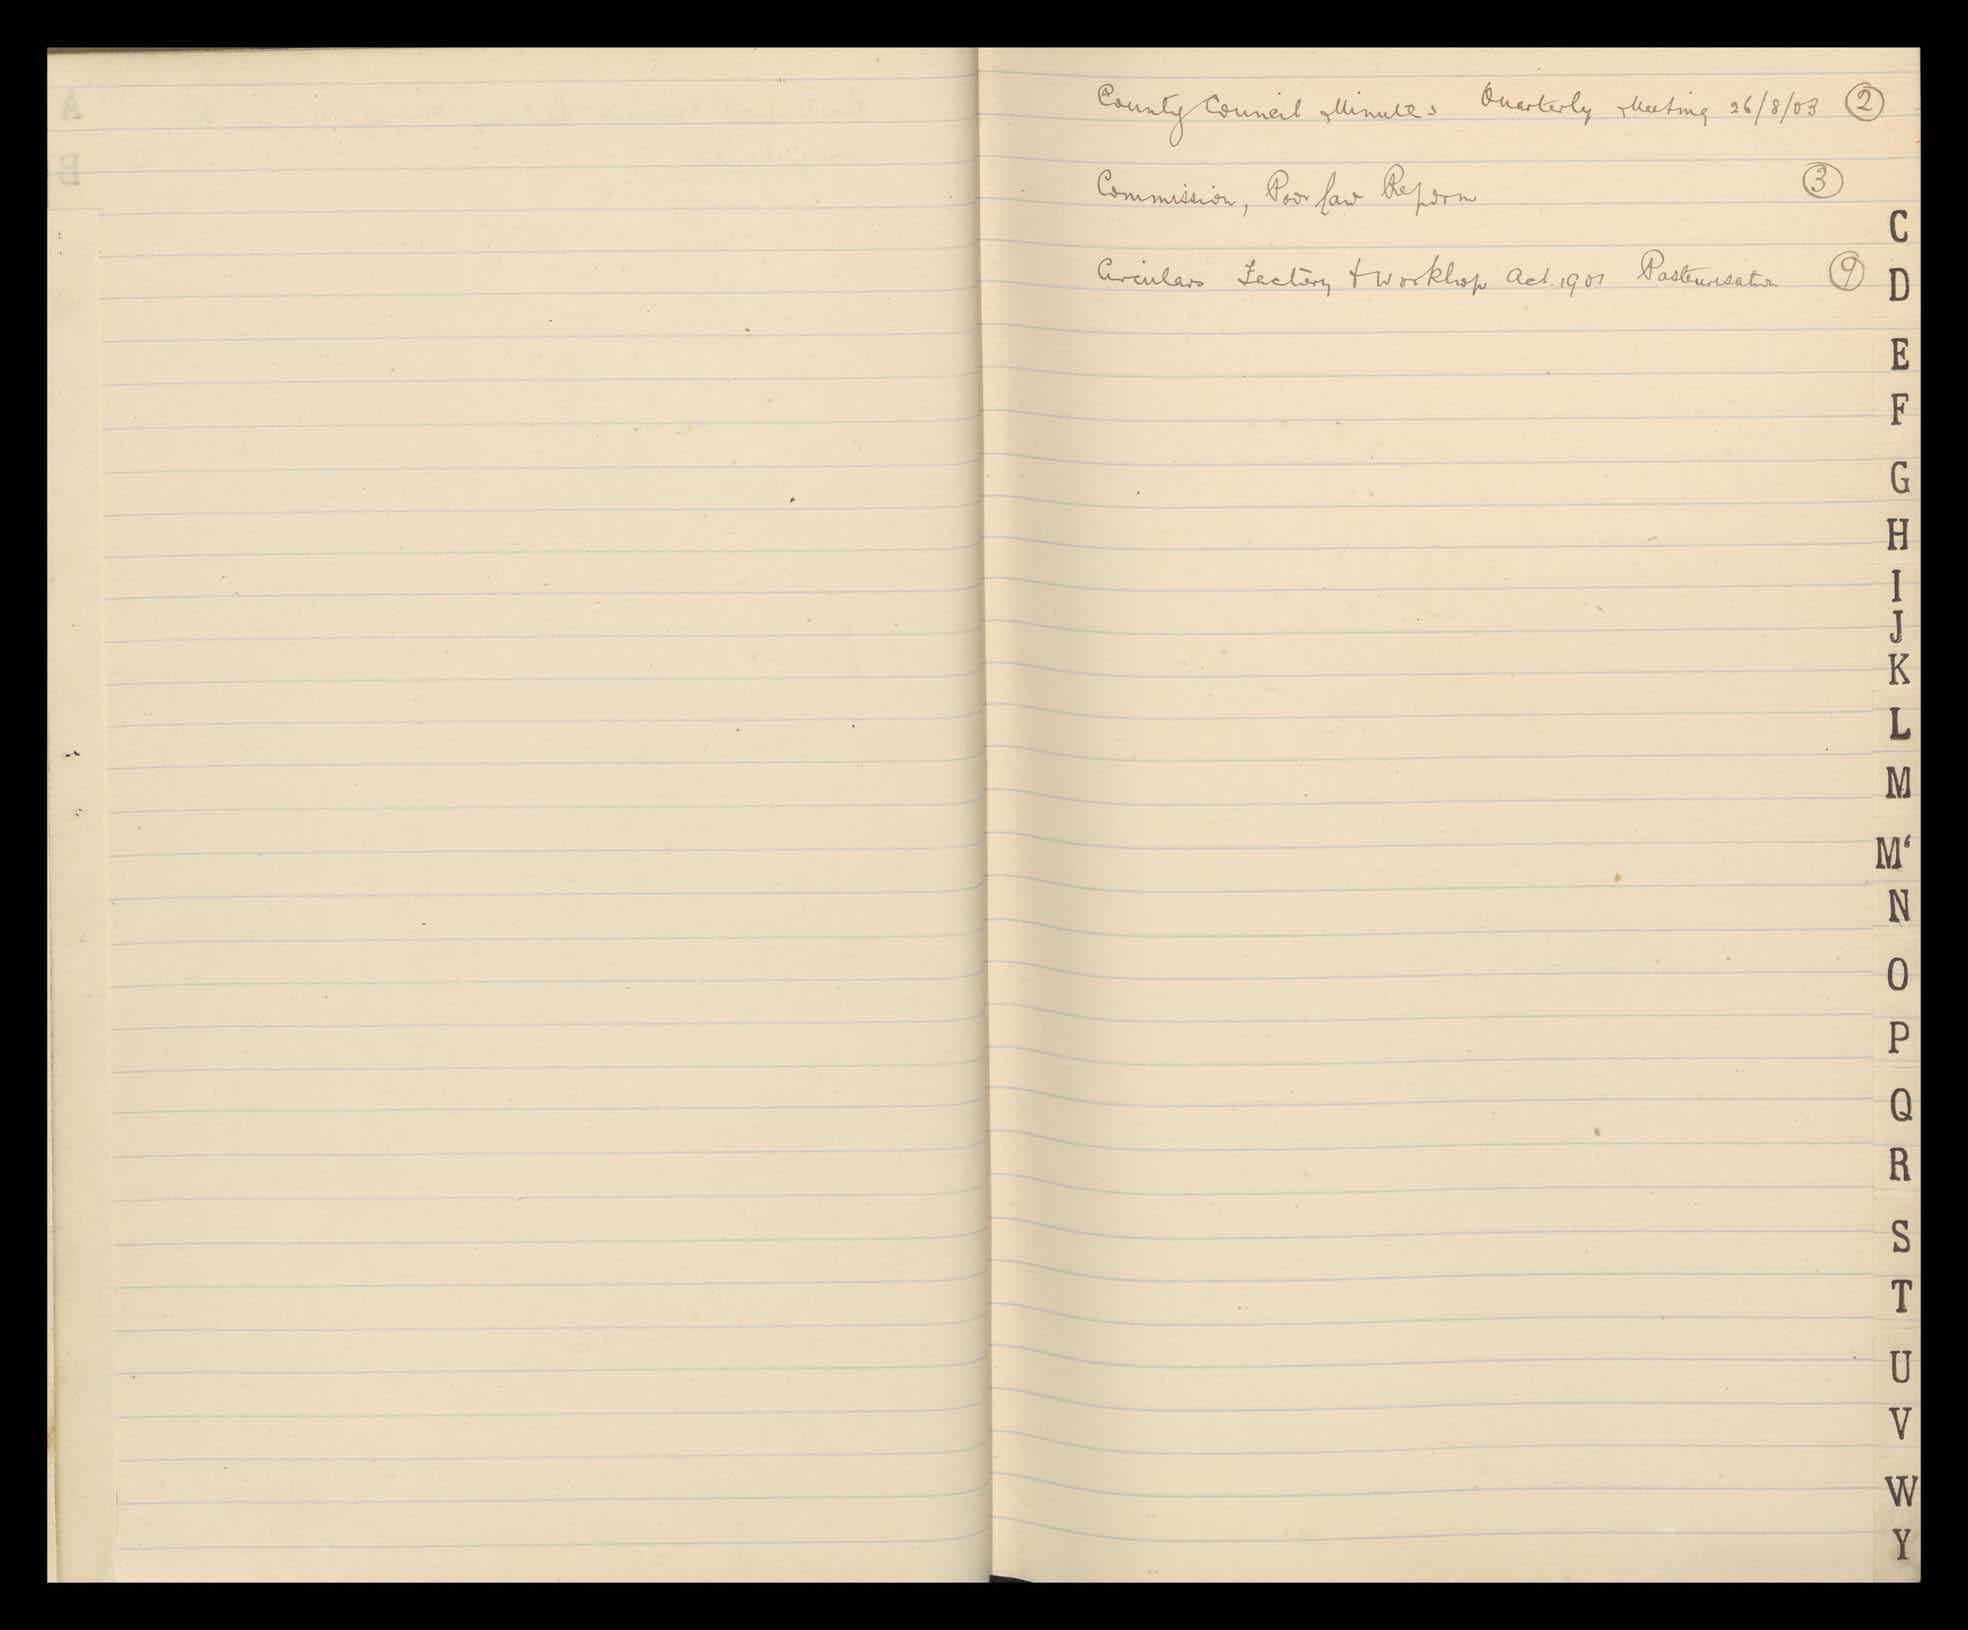 County Council Minutes Quarterly Meeting 26/8/03 2
Commission, Poor Law Reform 3
Circulars Factory & Workhop Act. 1901 Pasteurisation 9
A
B
C
D
E
F
G
H
I
J
K
L
M
M‘
N
O
P
Q
R
S
T
U
V
W
Y